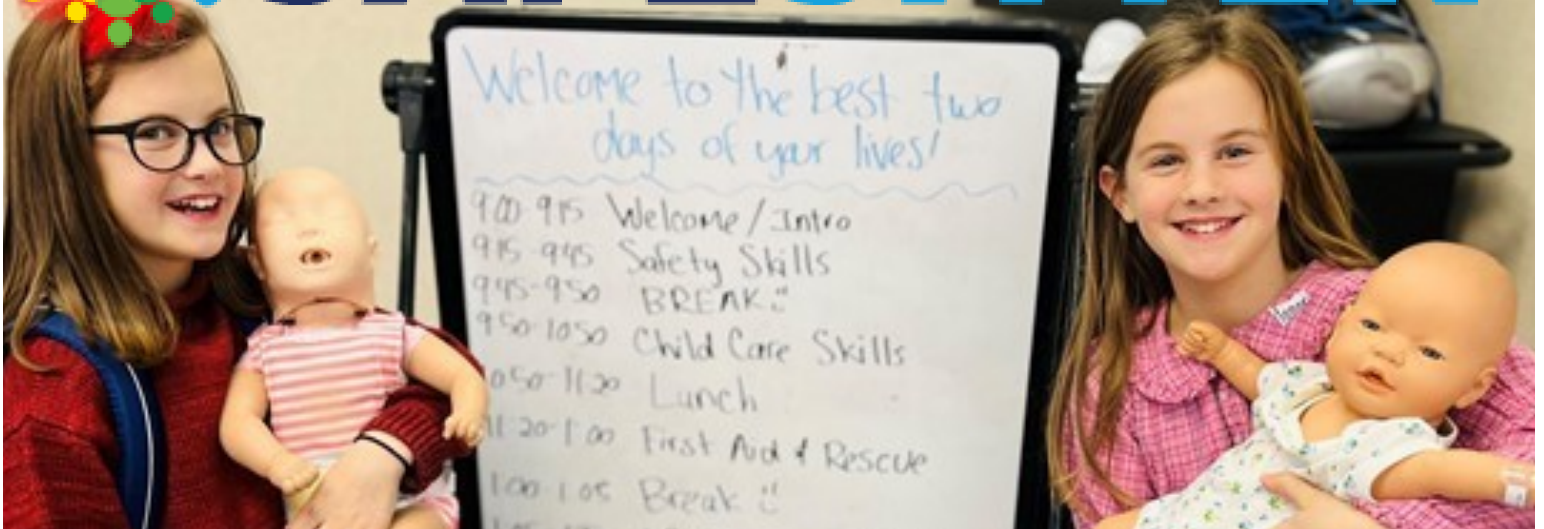 Welcome to the best two
days of your lives!
9:00-9:15 Welcome/Intro
9:15-9:45 Safety Skills
9:45-9:50 BREAK
9:50-10:50 Child Care Skills
10:50-11:20 Lunch
11:20-1:00 First Aid & Rescue
1:00-1:05 Break